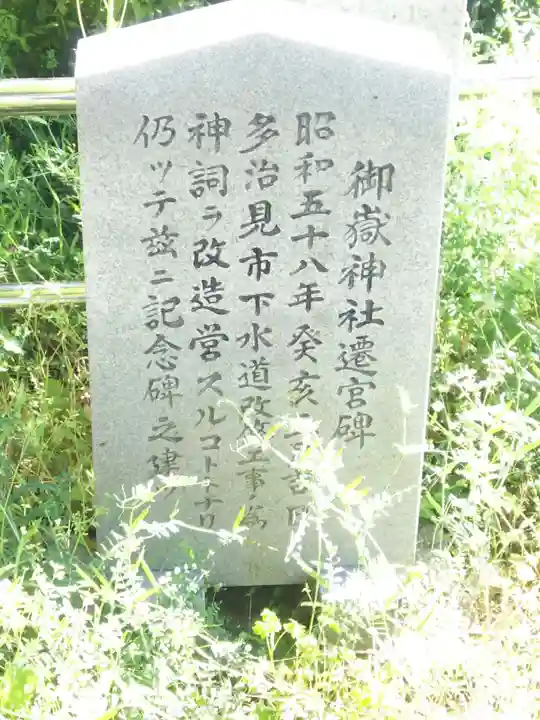 御嶽神社遷宮碑
昭和五十八年癸亥
多治見市下水道改修工事ノ為
神詞ヲ改造営スルコトトナリ
仍ッテ茲ニ記念碑之建ツ